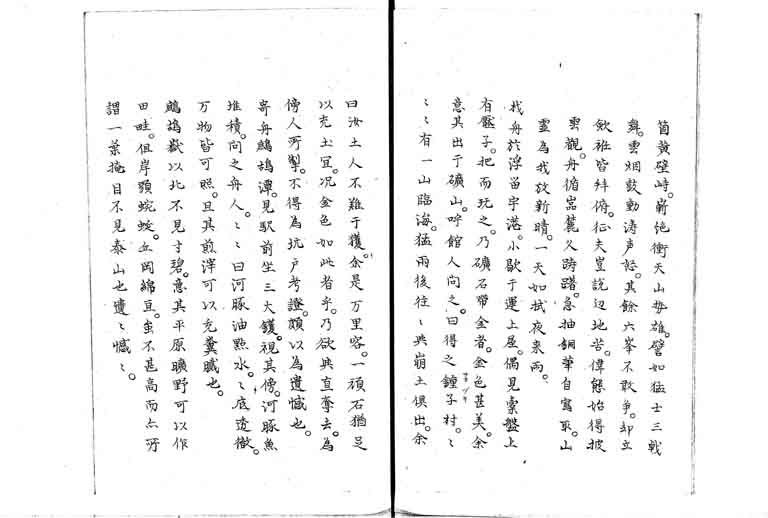 箇黄壁峙。嶄絶衝天山勢雄。譬如猛士三戰
舞。雲烟鼓動涛声好。其餘六峯不敢争。却立
歛衽皆拜俯。征夫豈説辺地苦。偉態始得披
雲觀。舟循嵓麓久踌躇。急抽銅筆自寫取。山
霊為我放新晴。一天如拭夜来雨。
找舟於浮留宇港。小歇于運上屋。偶見索盤上
有壓子。把而玩之。乃礦石帯金者。金色甚美。余
意其出于礦山。呼館人问之。曰得之鍾子村。〻
〻有一山臨海。猛雨後往〻與崩土倶出。余
曰汝土人不難于獲。余是万里客。一碩石猶足
以充土宜。况金色如此者乎。乃欲與直奪去。為
傍人所掣。不得為坑戸考證。頗以為遺憾也。
寄舟鷓鴣潭。見駅前坐三大鑊。視其傍。河豚魚
堆積。问之舟人。〻〻曰河豚油點水。〻底透徹。
万物皆可照。且其煎滓可以充糞膩也。
鷓鴣嶽以北不見寸碧。意其平原曠野可以作
田畦。但岸頭蜿蜒。丘岡綿亘。虽不甚高而亦所
謂一葉掩目不見泰山也遺〻憾〻。